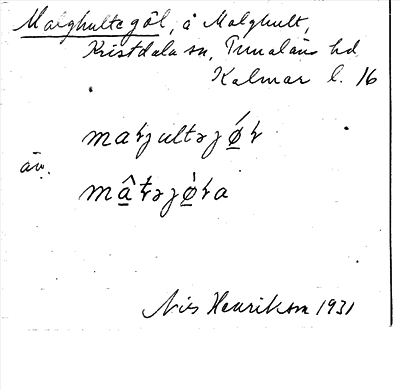 Malghulte göl, å Malghult,
Kristdala sn, Tunaläns hd
Kalmar l. 16
maɽgultəgǿ̱ɽ
äv.
mâ̱ɽəgǿ̱ɽa
Nils Henrikson 1931